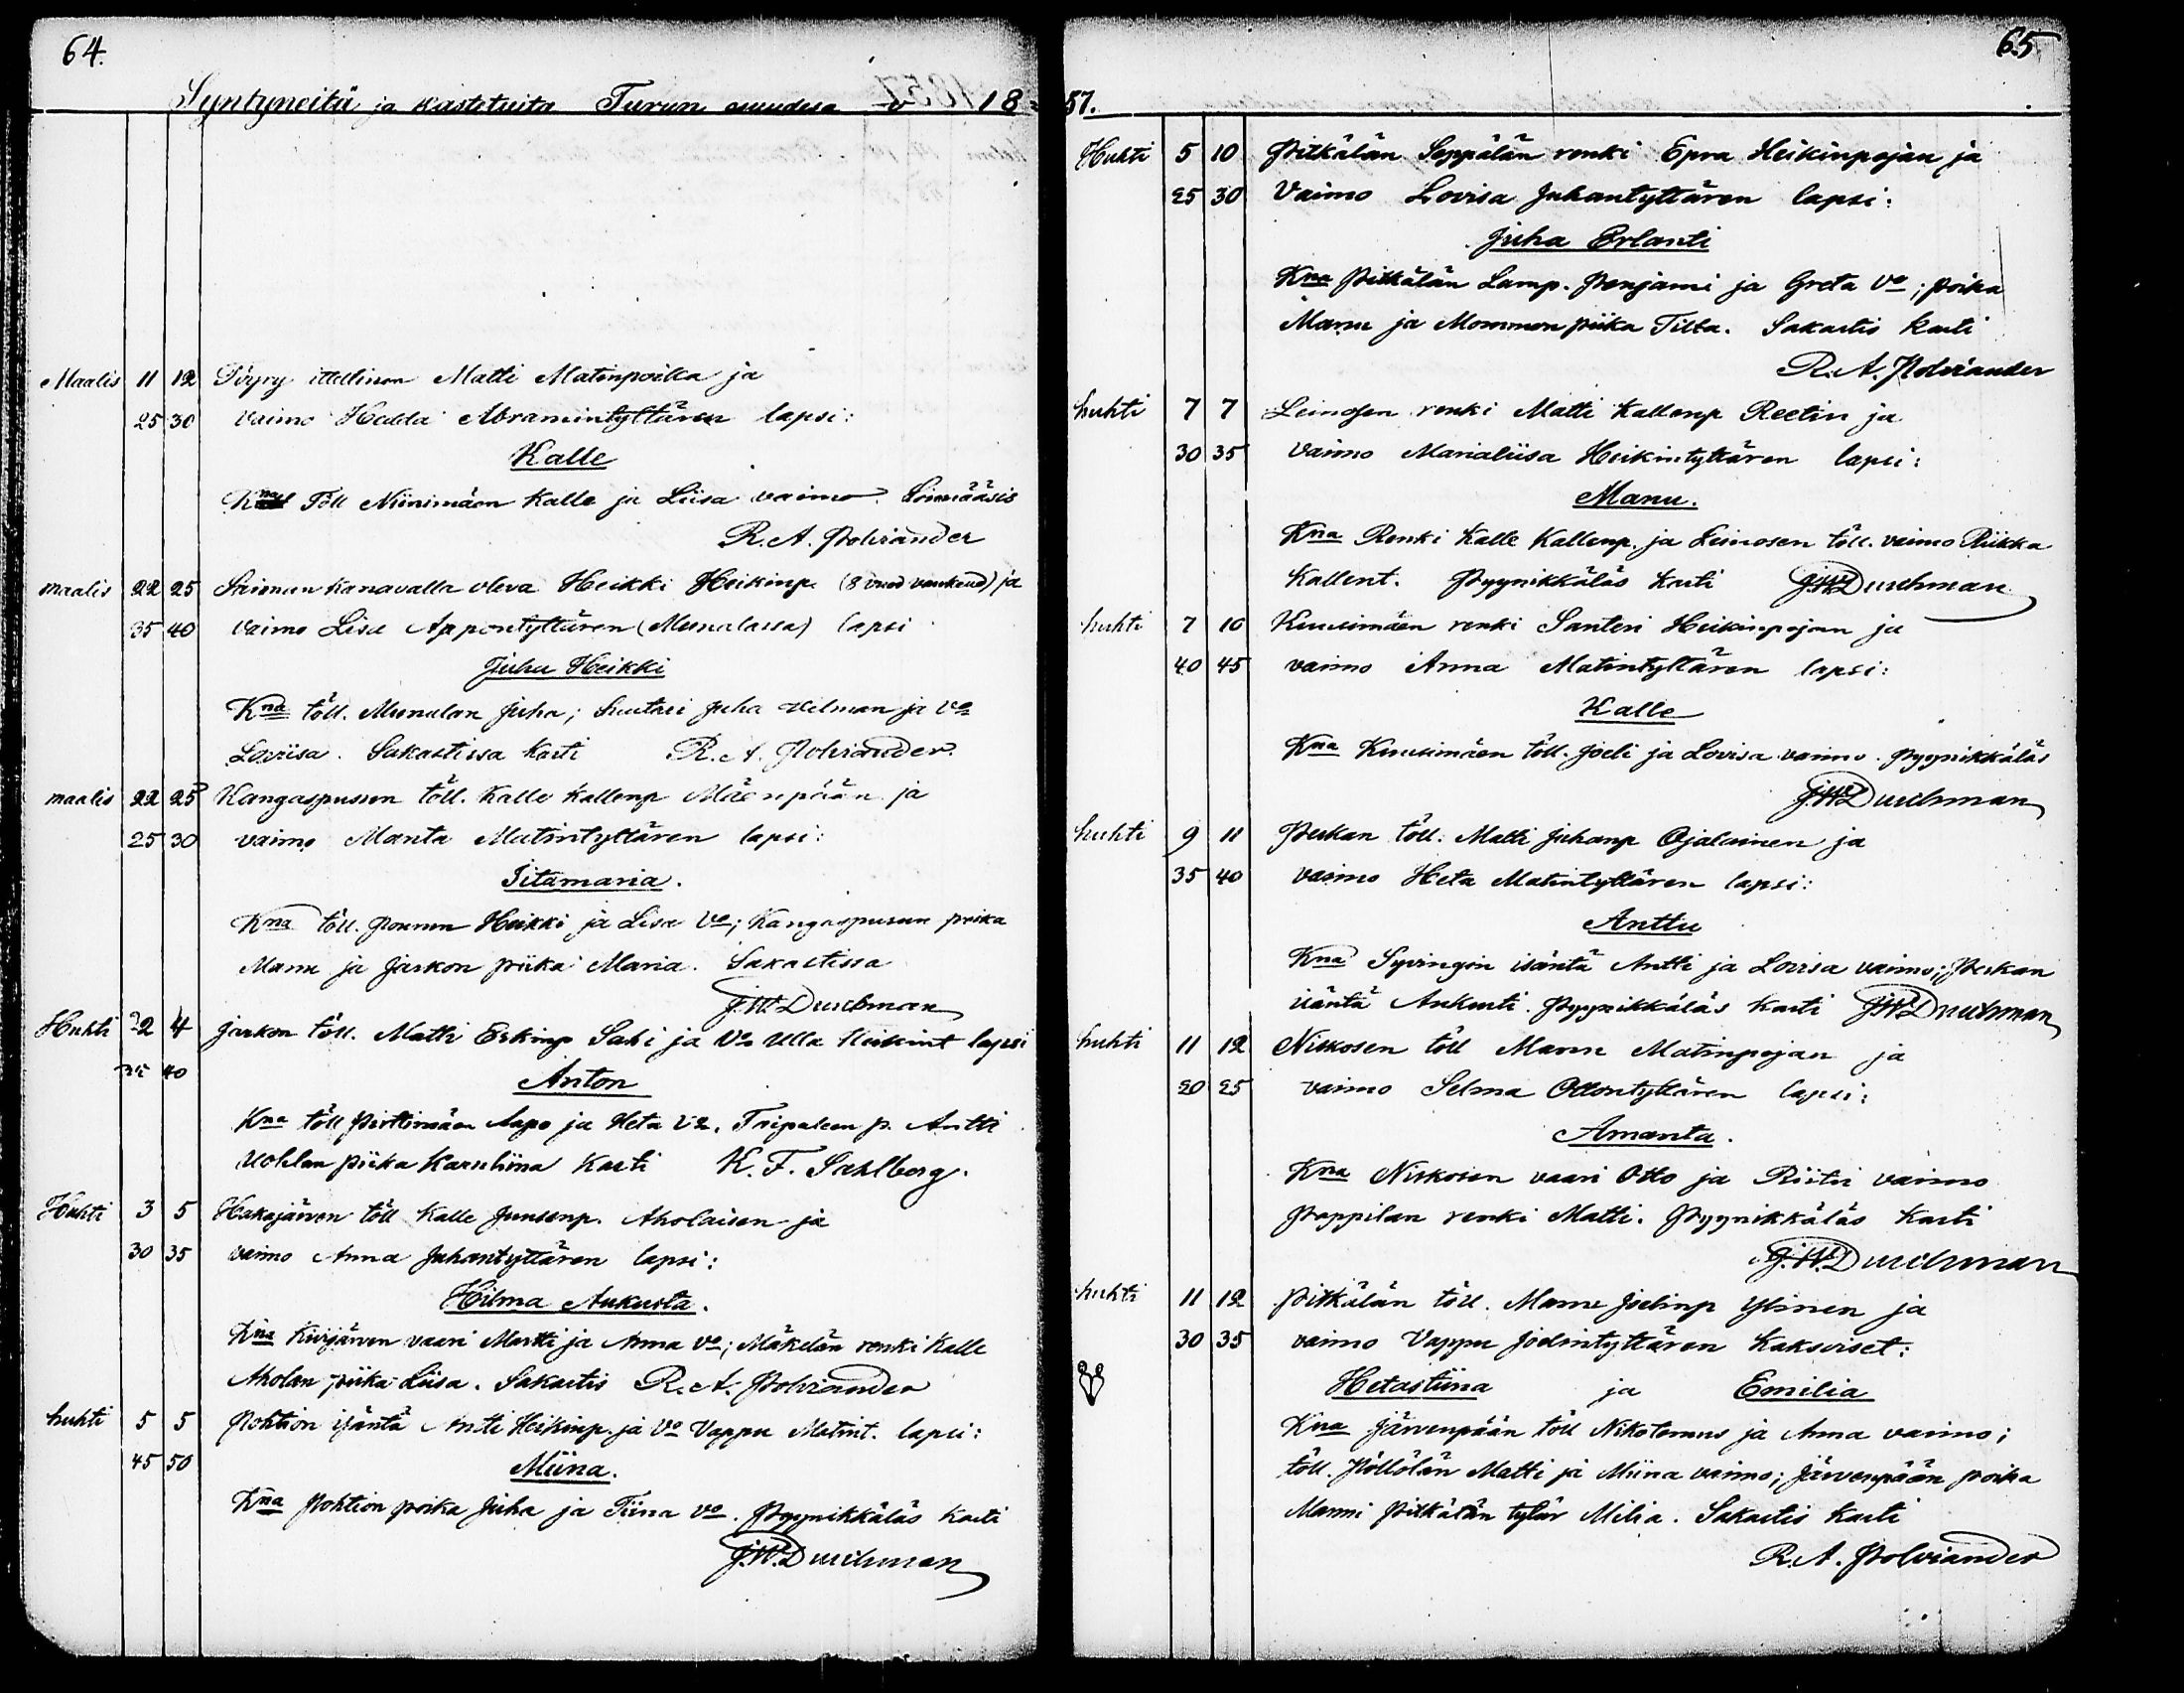 64.
Syntyneitä ja kastetuita Turun 18
Maalis 11 12 Töyry itellinen Matti Matinpoika ja
25 30 vaimo Hedda Abramintyttären lapsi:
Kalle
Kna Töll Niinimäen Kalle ja Liisa vaimo.
R. A. Polviander
maalis 22 25 Saiman Kanavalla oleva Heikki Heikinp. (8 ja
35 40 vaimo Lisa Appontyttären (Munalassa) lapsi
Juha Heikki
Kna töll. Munulan Juha; Suutari Juha Velman ja Vo
Loviisa. Sakastissa Kasti R. A. Polviander
maalis 22 25 Kangaspussen töll. Kalle Kallenp Mäenpään ja
25 30 vaimo Manta Matintyttären lapsi:
Iitamaria.
Kna töll. Heikki ja Lisa Vo; Kangaspusun poika
Manu ja Jaskon piika Maria. Sakastissa
J.W. Durchman
Huhti 2 4 Jaskon töll. Matti Erkinp Sahi ja Vo Ulla Heikint lapsi
35 40 Anton
Kna töll Pirttimäen Aapo ja Heta Vo. Taipaleen p. Antti
Uotilan piika Karuliina Kasti K. F. Sahlberg.
Huhti 3 5 Hakajärven töll Kalle Junsenp. Aholaisen ja
30 35 vaimo Anna Juhantyttären lapsi:
Hilma Aukusta.
Kna Kuijärven vaari Martti ja Anna vo; Mäkelän renki Kalle
Aholan piika Liisa. Sakastis R. A. Polviander
huhti 5 5 Pohtion isäntä Antti Heikinp. ja Vo Vappu Matint. lapsi:
45 50 Miina.
Kna Pohtion poika Juha ja Tiina vo. Pyynikkäläs Kasti
J.W. Durchman
65.
57.
Huhti 5 10 Pitkälän Seppälän renki Epra Heikinpojan ja
25 30 Vaimo Lovisa Juhantyttären lapsi:
Juha Erlanti
Kna Pitkälän Lamp. Penjami ja Greta Vo; poika
Manu ja Mommon piika Tilta. Sakastis Kasti
R. A. Polviander
huhti 7 7 Leinosen renki Matti Kallenp Reetin ja
30 35 Vaimo Marialiisa Heikintyttären lapsi:
Manu.
Kna Renki Kalle Kallenp. ja Leinosen töll. vaimo Riikka
Kallent. Pyynikkäläs Kasti J.W. Durchman
huhti 7 10 Kuusimäen renki Santeri Heikinpojan ja
40 45 vaimo Anna Matintyttären lapsi:
Kalle
Kna Kuusimäen töll. Joeli ja Lovisa vaimo. Pyynikkäläs
J.W. Durchman
huhti 9 11 Peskan töll. Matti Juhanp Ojalainen ja
35 40 vaimo Heta Matintyttären lapsi:
Anttu
Kna Syvingin isäntä Antti ja Lovisa vaimo; Peskan
isäntä Ankusti. Pyynikkäläs Kasti J.W. Durchman
huhti 11 12 Niskosen töll Manu Matinpojan ja
20 25 vaimo Selma Ottontyttären lapsi:
Amanta.
Kna Niskosen vaari Otto ja Riitu vaimo
Pappilan renki Matti. Pyynikkäläs Kasti
J.W. Durchman
huhti 11 12 Pitkälän töll. Manu Joelinp Ylinen ja
30 35 vaimo Vappu Joelintyttären Kaksoiset:
Hetastiina ja Emilia
Kna Järvenpään töll Nikotemus ja Anna vaimo;
töll. Pöllölän Matti ja Miina vaimo; Järvenpään poika
Manni Pitkälän tytär Milia. Sakastis Kasti
R. A. Polviander